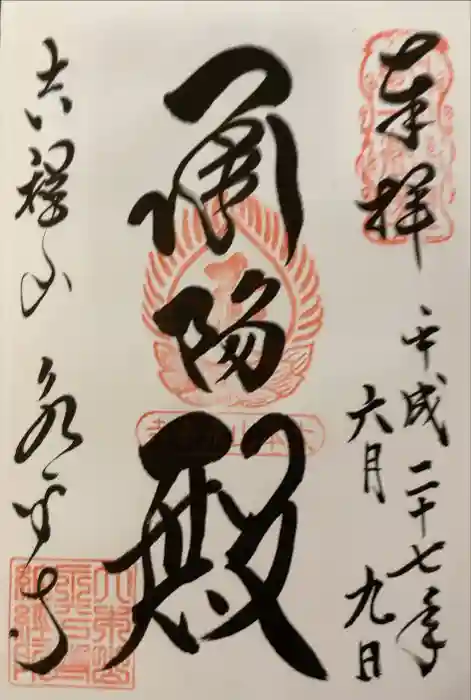 奉拝
平成二十七年
六月九日
承陽殿
吉祥山 永平寺